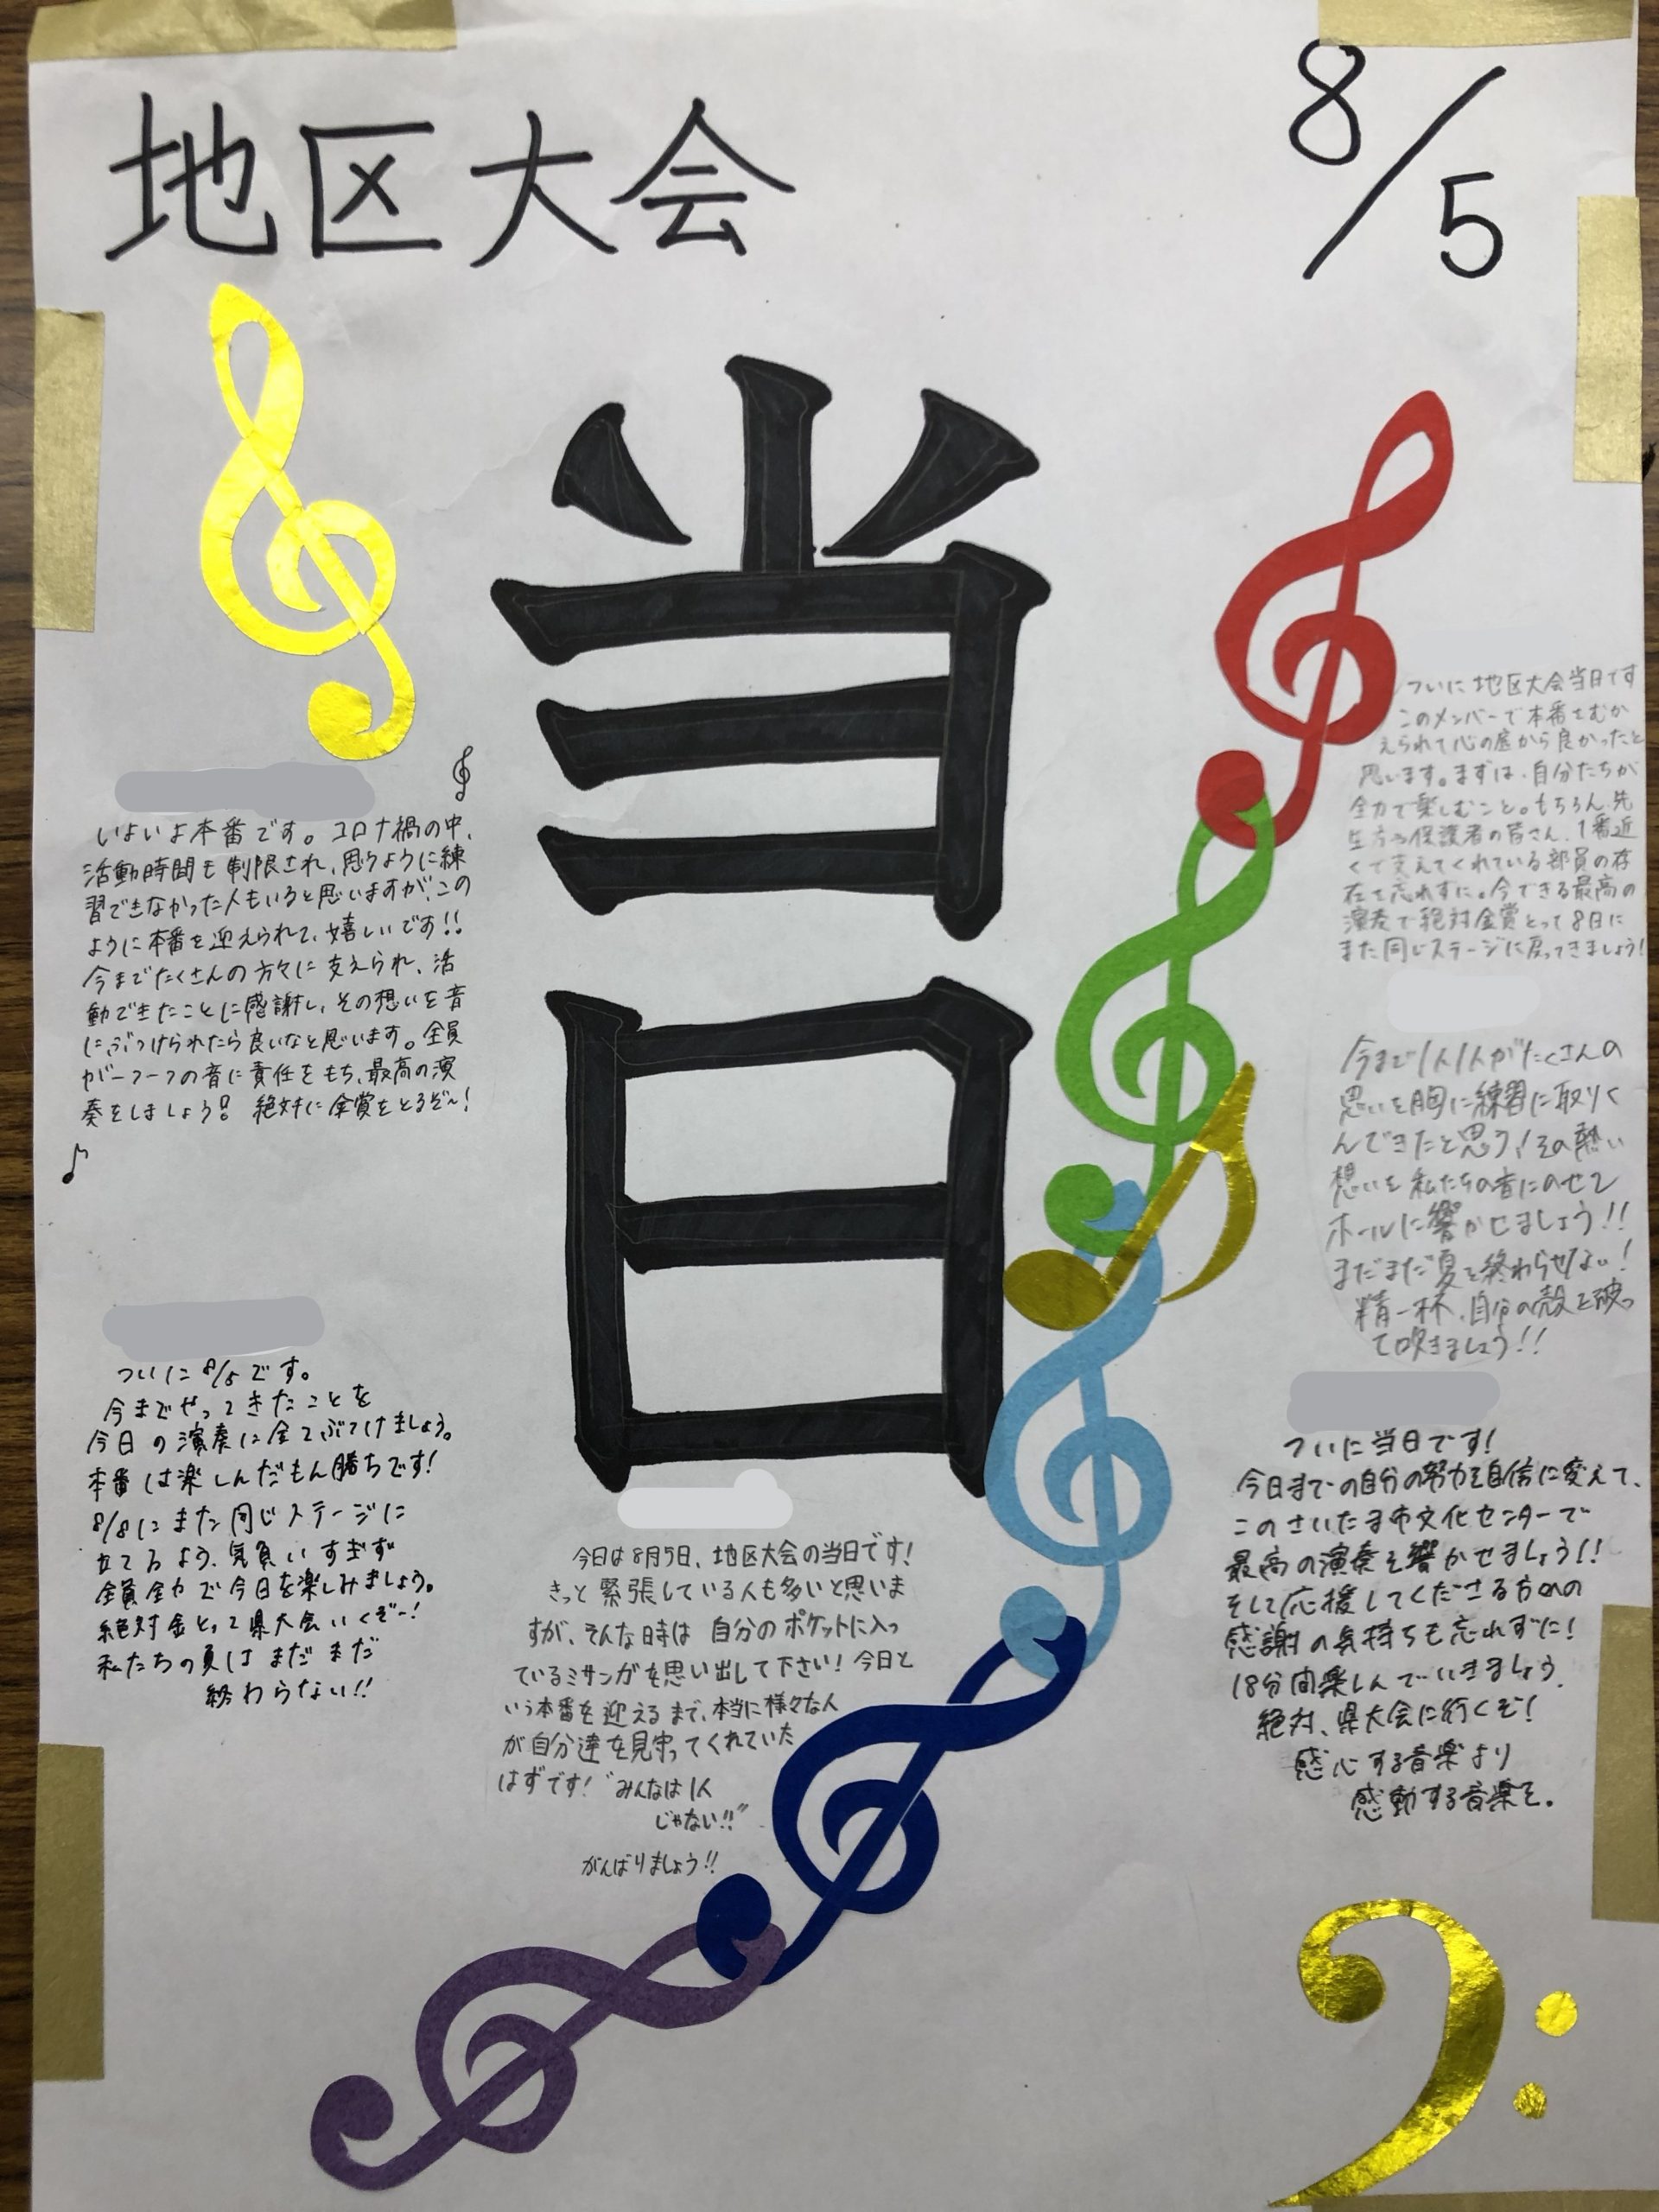 地区大会
8/5
当日
いよいよ本番です。コロナ禍の中、
活動時間も制限され、思うように練
習できなかった人もいると思いますが、この
ように本番を迎えられて、嬉しいです!!
今までたくさんの方々に支えられ、活
動できたことに感謝し、その想いを音
にぶつけられたら良いなと思います。全員
が一つ一つの音に責任をもち、最高の演
奏をしましょう!! 絶対に金賞をとるぞ〜!
ついに8/5です。
今までやってきたことを
今日の演奏に全てぶつけましょう。
本番は楽しんだもん勝ちです!
8/8にまた同じステージに
立てるよう、気負いすぎず
全員全力で今日を楽しみましょう。
絶対金とって県大会いくぞー!
私たちの夏はまだまだ
終わらない!!
今日は8月5日、地区大会の当日です!
きっと緊張している人も多いと思いま
すが、そんな時は自分のポケットに入っ
ているミサンガを思い出して下さい!今日と
いう本番を迎えるまで、本当に様々な人
が自分達を見守ってくれていた
はずです!"みんなは1人
じゃない!!"
がんばりましょう!!
ついに地区大会当日です
このメンバーで本番をむか
えられて心の底から良かったと
思います。まずは、自分たちが
全力で楽しむこと。もちろん、先
生方や保護者の皆さん、1番近
くで支えてくれている部員の存
在を忘れずに。今できる最高の
演奏で絶対金賞とって8日に
また同じステージに戻ってきましょう!
今まで1人1人がたくさんの
思いを胸に練習に取りく
んできたと思う!その熱い
想いを私たちの音にのせて
ホールに響かせましょう!!
まだまだ夏を終わらせない!
精一杯、自分の殻を破っ
て吹きましょう!!
ついに当日です!
今日までの自分の努力を自信に変えて、
このさいたま市文化センターで
最高の演奏を響かせましょう!!
そして応援してくださる方への
感謝の気持ちも忘れずに!
18分間楽しんでいきましょう。
絶対、県大会に行くぞ!
感心する音楽より
感動する音楽を。